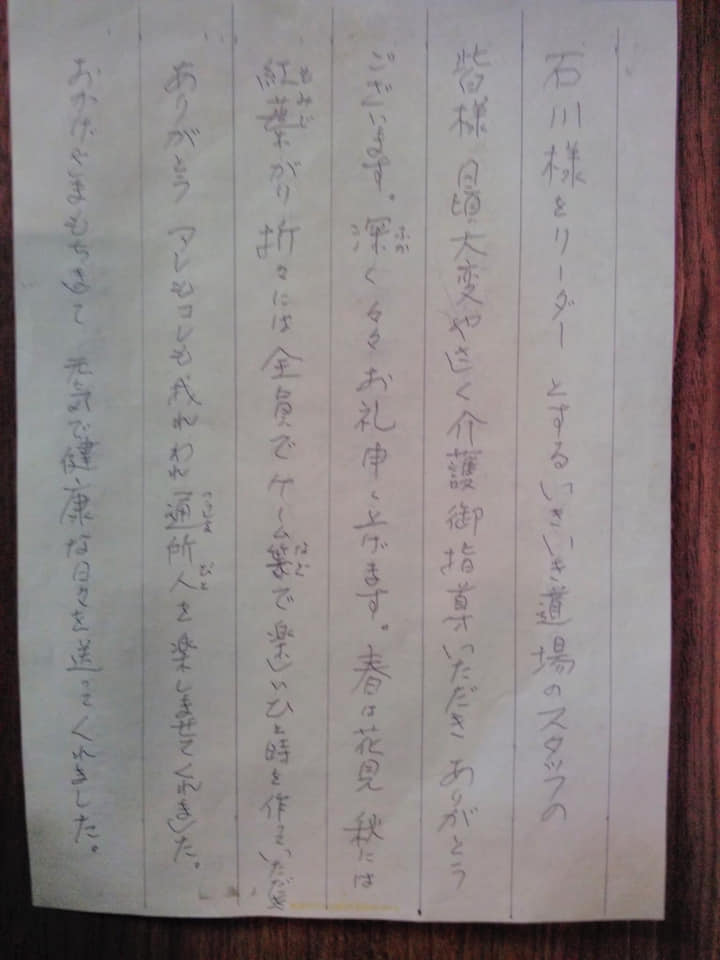 石川様をリーダーとするいきいき道場のスタッフの
皆様 日頃大変やさしく介護御指導いただき ありがとう
ございます。深く々々お礼申し上げます。春は花見 秋には
紅葉がり 折々には全員でゲーム等で楽しいひと時を作っていただき
ありがとう アレもコレも我れわれ通所人を楽しませてくれました。
おかげさまもちまして 元気で健康な日々を送ってくれました。